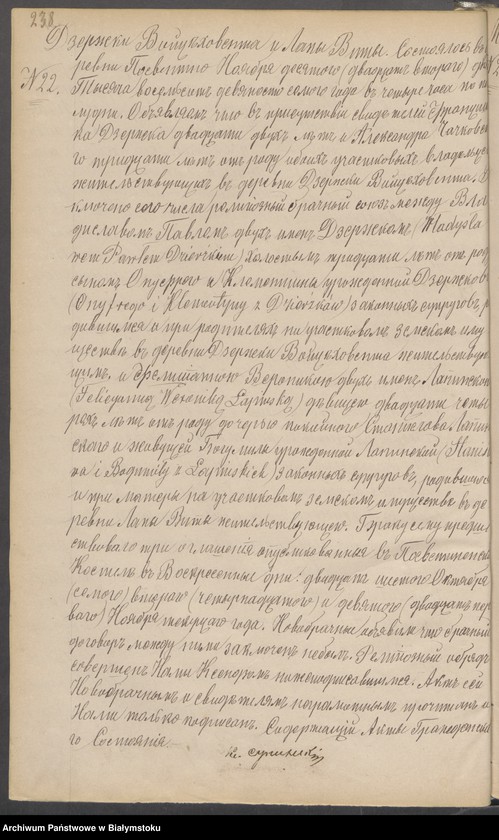 238
Дзержки Войцеховента и Лапы Виты. Состоялось въ
№ 22.
ревни Посвентно Ноября десятого (двадцать второго) дня
Тысяча восемьсотъ девяносто седьмого года въ четыре часа по по
лудни. Объявляемъ что въ присутствіи свидѣтелей Франциш
ка Дзержка двадцати двухъ лѣтъ и Александра
го тридцати лѣтъ отъ роду обоихъ участковыхъ владѣльцевъ
жительствующихъ въ деревни Дзержки Войцеховента. З
ключено сего числа религіозный брачный союзъ между Вла
диславомъ Павломъ двухъ именъ Дзержкомъ (Władysła
wem Pawłem Dzierżkiem) холостымъ тридцати лѣтъ отъ роду
сыномъ Онуфрого и Клементины урожденной Дзержковъ
(Onufrego i Klementyny z Dzierżków) законныхъ супруговъ р
дившимся и при родителяхъ на участковомъ земскомъ иму
ществѣ въ деревни Дзержки Войцеховента жительствую
щимъ. и Фелиціанною Вероникою двухъ именъ Лапинскою
(Felicyanną Weroniką Łapinską) дѣвицею двадцати четы
рехъ лѣтъ отъ роду дочерью покойного Станислава Лапин
ского и живущей Богумилы урожденной Лапинской (Stanis
ława i Bogumiły z Łapinskich) законныхъ супруговъ, родившеюся
и при матери на участковомъ земскомъ имуществѣ въ де
ревни Лапы Виты жительствующею. Браку сему предше
ствовало три оглашенія опубликованныя въ Посвентненскомъ
Костелѣ въ Воскресенные дни: двадцать шестого Октября
(седьмого) второго (четырнадцатого) и девятого (двадцать пер
ваго) Ноября текущаго года. Новобрачные объявили что брачный
договоръ между ними заключенъ небылъ. Религіозный обрядъ
совершенъ Нами Ксендзомъ нижеподписавшимся. Актъ сей
Новобрачнымъ и свидѣтелямъ неграмотнымъ прочитанъ и
Нами только подписанъ. Содержащій Акты Гражданска
го Состоянія
Кс.
Archiwum Państwowe w Białymstoku